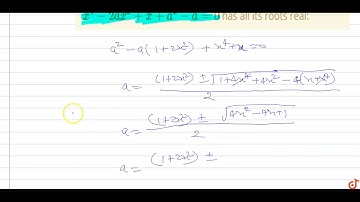 x⁴ - 2ax² + x + a² - a = 0 has all its roots real:
a² - a(1+2x²) + x⁴ + x = 0
a = (1+2x²) ± √(1+4x⁴+4x²-4(x+x⁴)) / 2
a = (1+2x²) ± √(4x²-4x+1) / 2
a = (1+2x²) ±